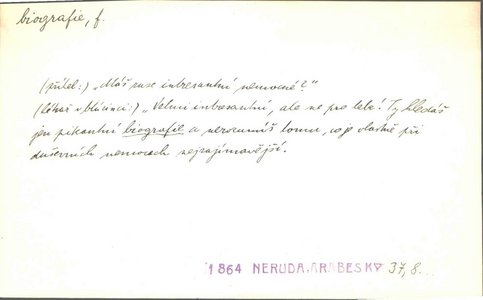 biografie, f.
(přítel:) „Máš zase intresantní nemocné?"
(lékař v blázinci:) „Velmi intresantní, ale ne pro tebe! Ty hledáš
jen pikantní biografie a nerozumíš tomu, co je vlastně při
duševních nemocech nejzajímavější.
1864 NERUDA, ARABESKY 37, 8.